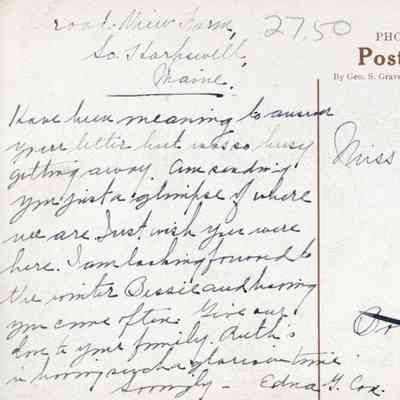 road. View Farm,
27.50
So. Harpswell,
Maine.
Have been meaning to answer
your letter but was so busy
getting away. Am sending
you just a glimpse of where
we are. Just wish you were
here. I am looking forward to
the winter Bessie and having
you come often. Give our
love to your family. Ruth is
in having such a glorious time.
Lovingly - Edna G. Cox.
PHO
Post
By Geo. S. Grav
Miss